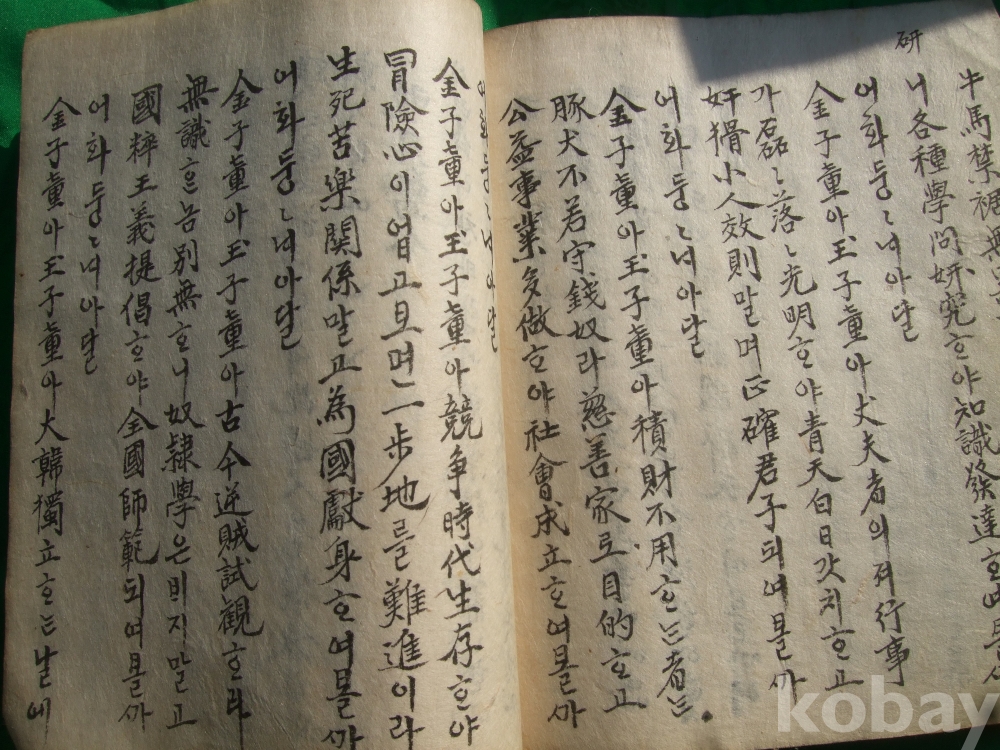 研
牛馬禁裙無
니各種學問姸究ᄒᆞ야知識發達ᄒᆞ
어화둥〻너아달
金子童아玉子童아丈夫者의져行事
가磊〻落〻光明ᄒᆞ야靑天白日갓치ᄒᆞ고
奸猾小人效則말며正確君子되여볼ᄭᅡ
어화둥〻너아달
金子童아玉子童아積財不用ᄒᆞᄂᆞᆫ者ᄂᆞᆫ
豚犬不若守錢奴라慈善家로目的ᄒᆞ고
公益事業多做ᄒᆞ야社會成立ᄒᆞ여볼ᄭᅡ
어화둥〻너아달
金子童아玉子童아競爭時代生存ᄒᆞ야
冒險心이업고보며一步地를難進이라
生死苦樂關係말고爲國獻身ᄒᆞ여볼ᄭᅡ
어화둥〻너아달
金子童아玉子童아古今逆賊試觀ᄒᆞ라
無識ᄒᆞᆫ놈別無ᄒᆞ니奴隸學은ᄇᆡ지말고
國粹主義提倡ᄒᆞ야全國師範되여볼ᄭᅡ
어화둥〻너아달
金子童아玉子童아大韓獨立ᄒᆞᄂᆞᆫ날에
kobay